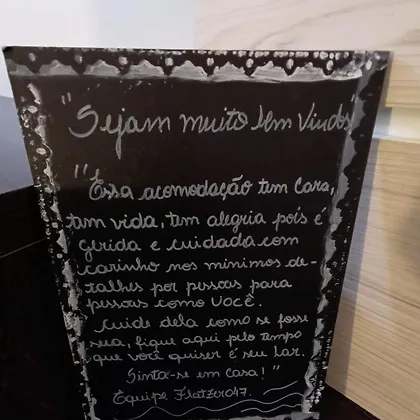 "Sejam muito bem Vindos"
"Essa acomodação tem Cara,
tem vida, tem alegria pois é
gerida e cuidada com
carinho nos minimos de-
talhes por pessoas para
pessoas como VOCÊ.
Cuide dela como se fosse
sua, fique aqui pelo tempo
que você quiser é seu Lar.
Sinta-se em casa!"
Equipe Flatzero47.